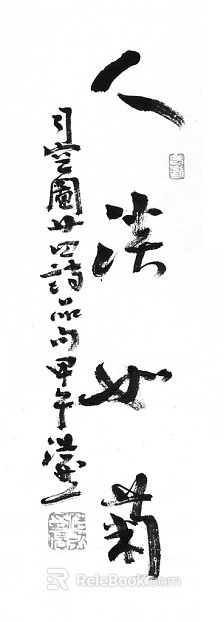 人淡如菊
司空圖廿四詩品句甲午
ReleBook.com